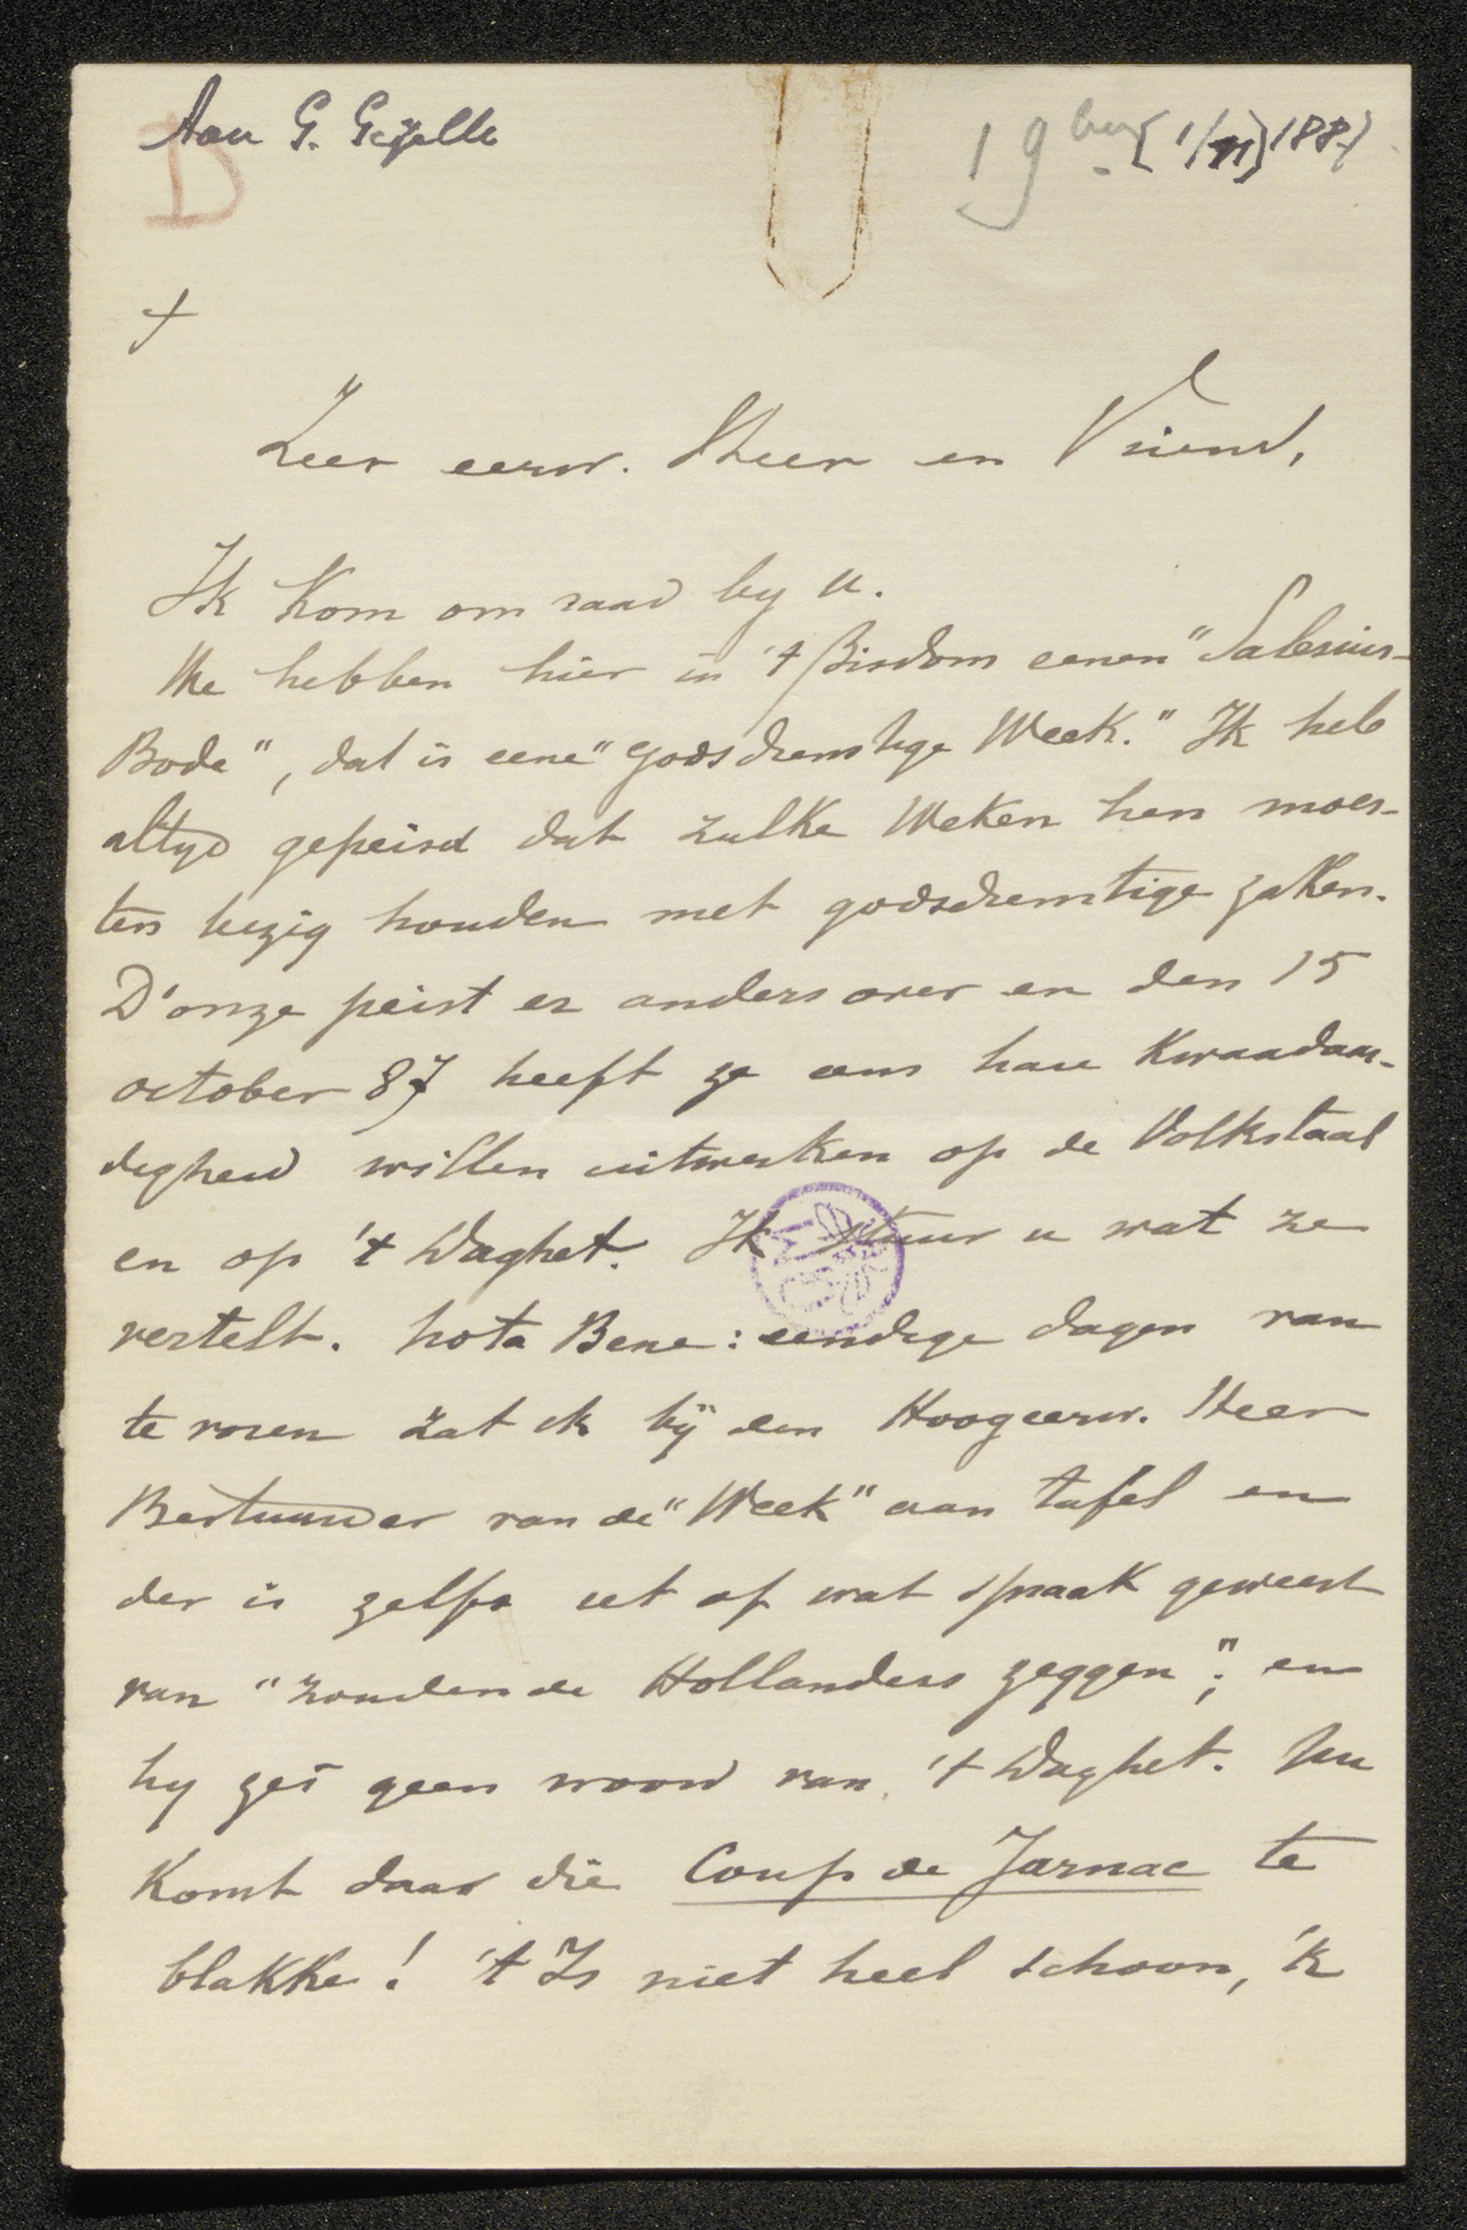 Aan G. Gezelle
1 9ber [1/11] 1887
D
+
Zeer eerw. Heer en Vriend,
Ik kom om raad by u.
We hebben hier in 't Bisdom eenen "Salesius-
Bode", dat is eene "godsdienstige Week." Ik heb
altyd gepeisd dat zulke Weken hen moes-
ten bezig houden met godsdienstige zaken.
D'onze peist er anders over en den 15
october 87 heeft ze eens hare kwaadaar-
digheid willen uitwerken op de Volkstaal
en op 't Daghet. Ik stuur u wat ze
vertelt. Nota Bene: eenige dagen van
te voren zat ik bij den Hoogeerw. Heer
Bestuurder van de "Week" aan tafel en
der is zelfs iet of wat spraak geweest
van "zouden de Hollanders zeggen"; en
hy zei geen woord van 't Daghet. Nu
komt daar die Coup de Jarnac te
blakke! 't Is niet heel schoon, 'k